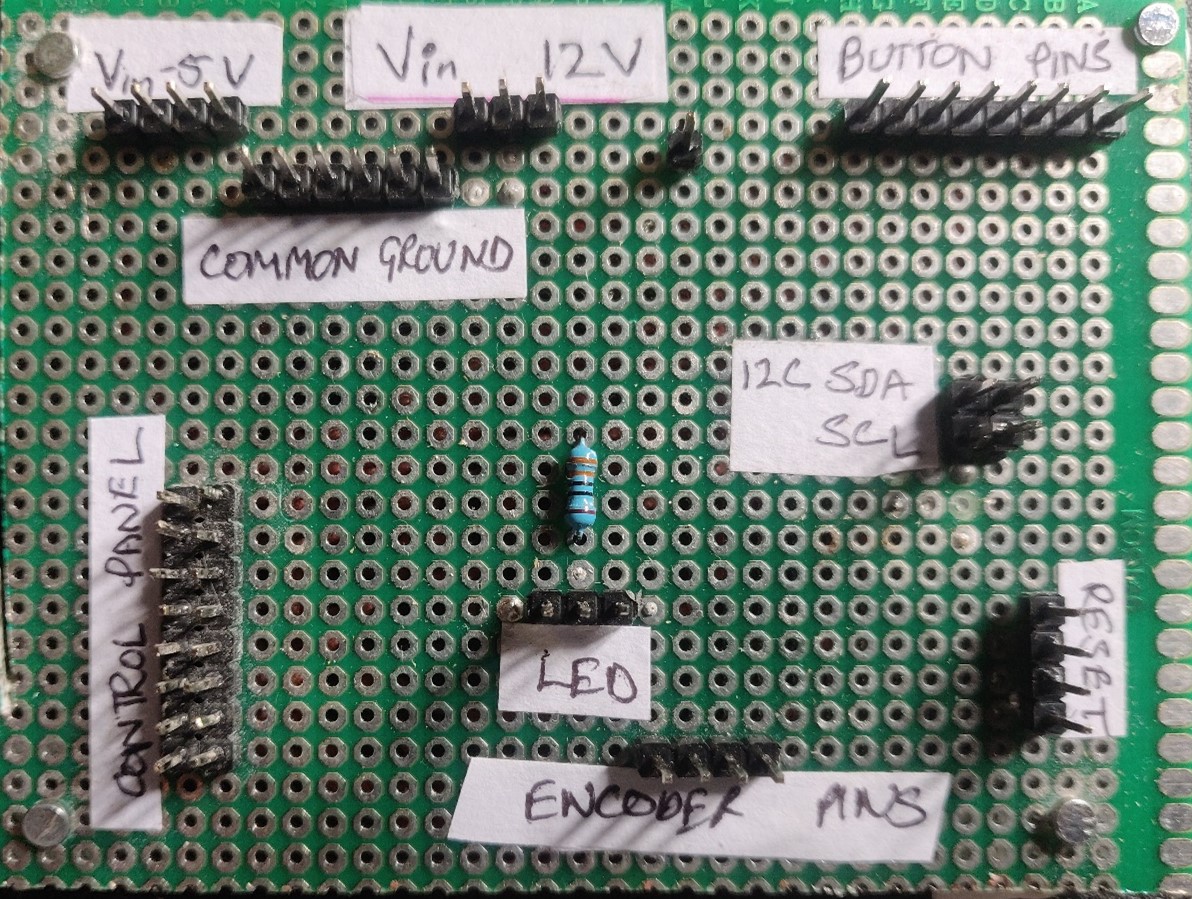 Vin-5V
Vin 12V
BUTTON PINS
COMMON GROUND
I2C SDA
SCL
CONTROL PANEL
RESET
LED
ENCODER PINS